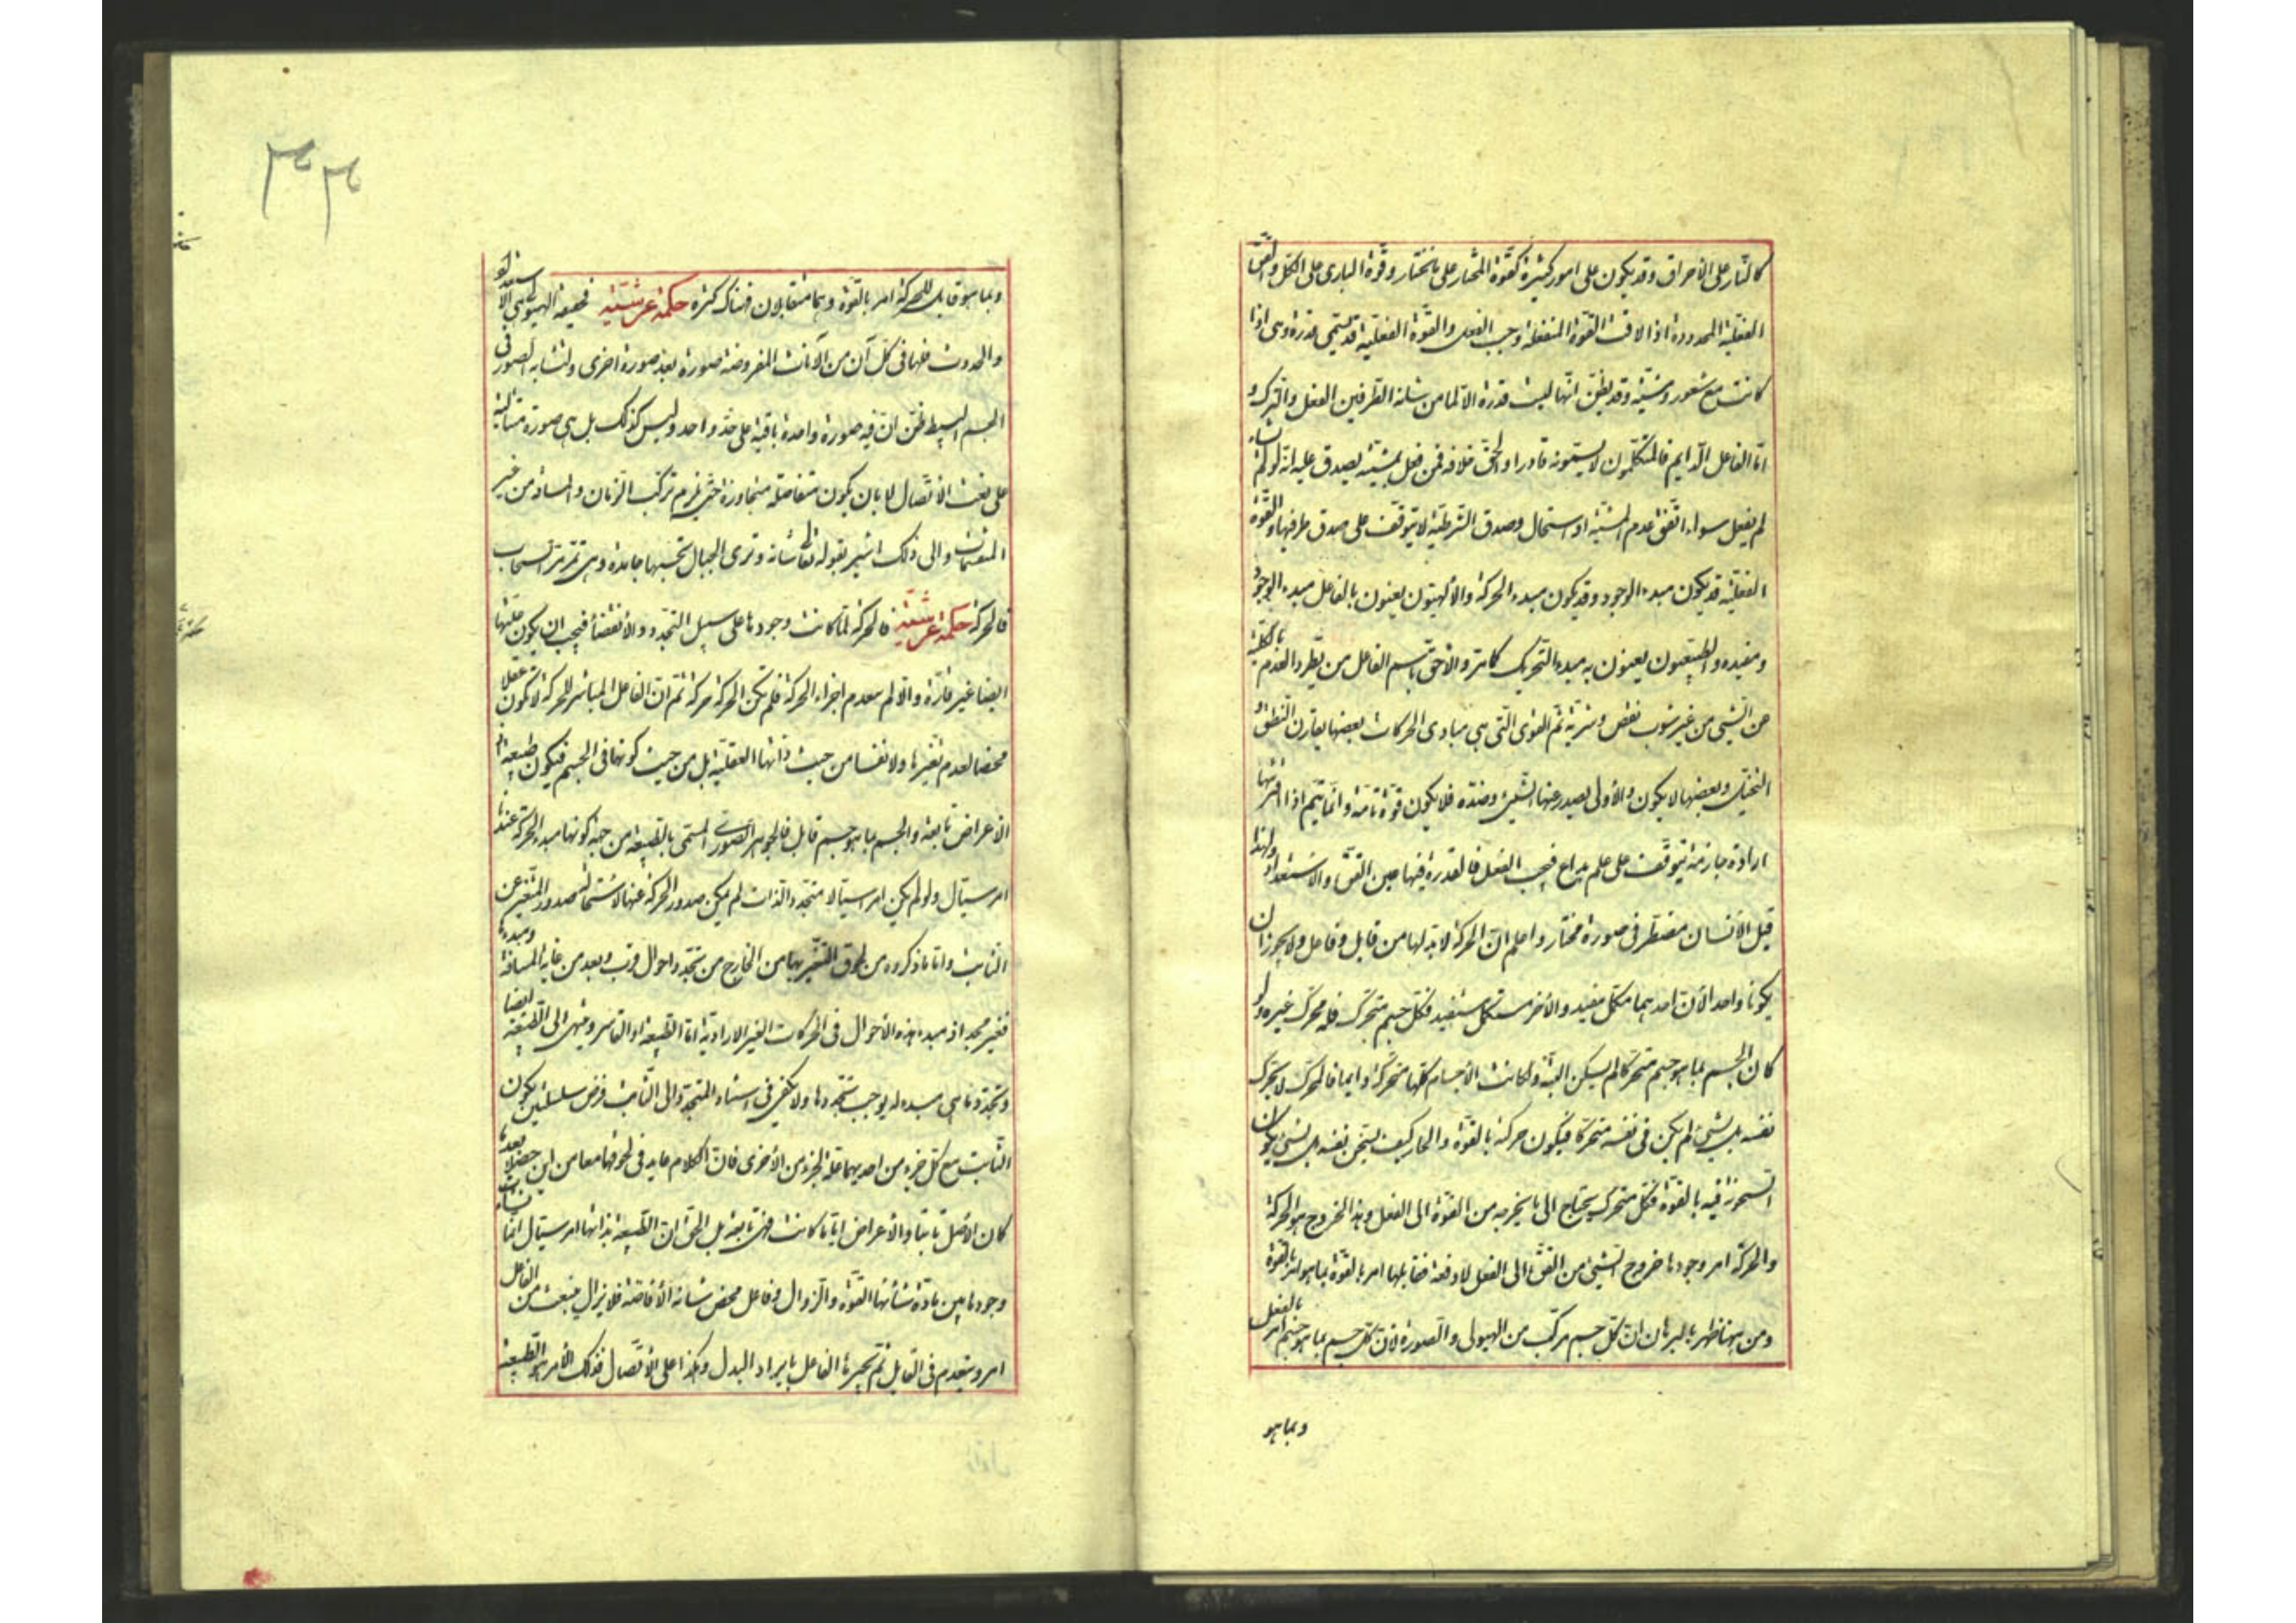 كالنار على الاحراق وقد يكون على امور كثيرة كقوة المختار على ما يختار وقوة البارى على الكل والقوة
الفعلية المحدودة اذا لاقت القوة المنفعلة وجب الفعل والقوة الفعلية قد يسمى قدرة وهى اذا
كانت مع شعور ومشية وقد يظن انها ليست قدرة الا لما من شانه الطرفين الفعل والترك و
اما الفاعل الدايم فالمتكلمون لا يسمونه قادرا والحق خلافه فمن فعل بمشية يصدق عليه انه لو لم يشاء
لم يفعل سواء اتفق عدم المشية او استحال وصدق الشرطية لا يتوقف على صدق طرفيها والقوة
الفعلية قد يكون مبدء الوجود وقد يكون مبدء الحركة والالهيون يعنون بالفاعل مبدء الوجود
ومفيده والطبيعيون يعنون به مبدء التحريك كما مر والاحق باسم الفاعل من يطرد العدم بالكلية
عن الشىء من غير شوب نقص وشرية ثم القوى التى هى مبادى الحركات بعضها يقارن النطق و
التخيل وبعضها لا يكون والاولى يصدر عنها الشىء وضده فلا يكون قوة تامة وانما يتم اذا اقترنها
ارادة جازمة يتوقف على علم بداع فيجب الفعل فالقدرة فيها عين القوة والاستعداد ولهذا
قيل الانسان مضطر فى صورة مختار واعلم ان الحركة لا بد لها من قابل وفاعل ولا يجوز ان
يكونا واحدا لان احدهما مكمل مفيد والاخر مستكمل مستفيد فكل جسم متحرك فله محرك غيره ولو
كان الجسم بما هو جسم متحركا لم يسكن البتة ولكانت الاجسام كلها متحركة وايضا فالمحرك لا يتحرك
نفسه بل بشىء لم يكن فى نفسه متحركا فيكون حركة بالقوة والحار كيف يسخن نفسه بل بشىء يكون
السخونة فيه بالقوة فكل متحرك يحتاج الى ما يخرجه من القوة الى الفعل وهذا الخروج هو الحركة
والحركة امر وجودها خروج الشىء من القوة الى الفعل لا دفعة فقابلها امر بالقوة بما هو امر بالقوة
ومن ههنا ظهر بالبرهان ان كل جسم مركب من الهيولى والصورة لان كل جسم بما هو جسم امر بالفعل
وبما هو
وبما هو قابل للحركة امر بالقوة وهما متقابلان فهناك كثرة حكمة عرشية فحقيقة الهيولى هى الاستعداد
والحدوث فلها فى كل آن من الآنات المفروضة صورة بعد صورة اخرى ولتشابه الصور فى
الجسم البسيط ظن ان فيه صورة واحدة باقية على حد واحد وليس كذلك بل هى صورة متتالية
على نعت الاتصال لا بان يكون متفاصلة متجاورة حتى يلزم تركب الزمان والمسافة من غير
المنقسمات والى ذلك اشير بقوله تعالى شانه وترى الجبال تحسبها جامدة وهى تمر مر السحاب
فالحركة حكمة عرشية فالحركة لما كانت وجودها على سبيل التجدد والانقضاء فيجب ان يكون علتها
ايضا غير قارة والا لم ينعدم اجزاء الحركة فلم تكن الحركة حركة ثم ان الفاعل المباشر للحركة لا يكون عقلا
محضا لعدم تغيرها ولا نفسا من حيث ذاتها العقلية بل من حيث كونها فى الجسم فيكون طبيعة
الاعراض تابعة والجسم بما هو جسم قابل فالجوهر الصورى المسمى بالطبيعة من جهة كونها مبدء الحركة عندنا
امر سيال ولو لم يكن امر سيالا متجدد الذات لم يمكن صدور الحركة عنها لاستحالة صدور المتغير عن
الثابت واما ما ذكروه من لحوق التغير بها من الخارج من تجدد احوال قرب وبعد من غاية المسافة ومبدءها
فغير مجد اذ مبدء هذه الاحوال فى الحركات الغير الارادية اما الطبيعة او القاسر وينتهى الى الطبيعة ايضا
وتجددها هى مبدء له يوجب تجددها ولا يكفى فى استناد المتجدد الى الثابت فرض سلسلتين يكون
الثابت مع كل جزء من احديهما علة لجزء من الاخرى فان الكلام عايد فى لحوقهما معا من اين حصلا بعد ما
كان الاصل ثابتا والاعراض اياما كانت فهى تابعة بل الحق ان الطبيعة بذاتها امر سيال انما نشاءت
وجودها بين مادة شأنها القوة والزوال وفاعل محض شانه الافاضة فلا يزال ينبعث من الفاعل
امر وينعدم فى القابل ثم تجبرها الفاعل بايراد البدل وهكذا على الاتصال فذلك الامر هو الطبيعة